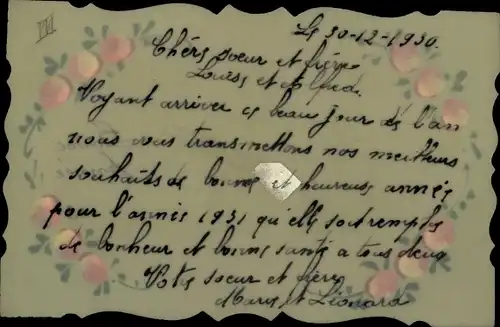 Le 30-12-1930.
Chers soeur et frère
Louise et Alfred.
Voyant arriver ce beau jour de l'an
nous vous transmettons nos meilleurs
souhaits de bonne et heureuse année
pour l'année 1931 qu'elle soit remplie
de bonheur et bonne santé a tous deux
Votre soeur et frère
Marie et Léonard